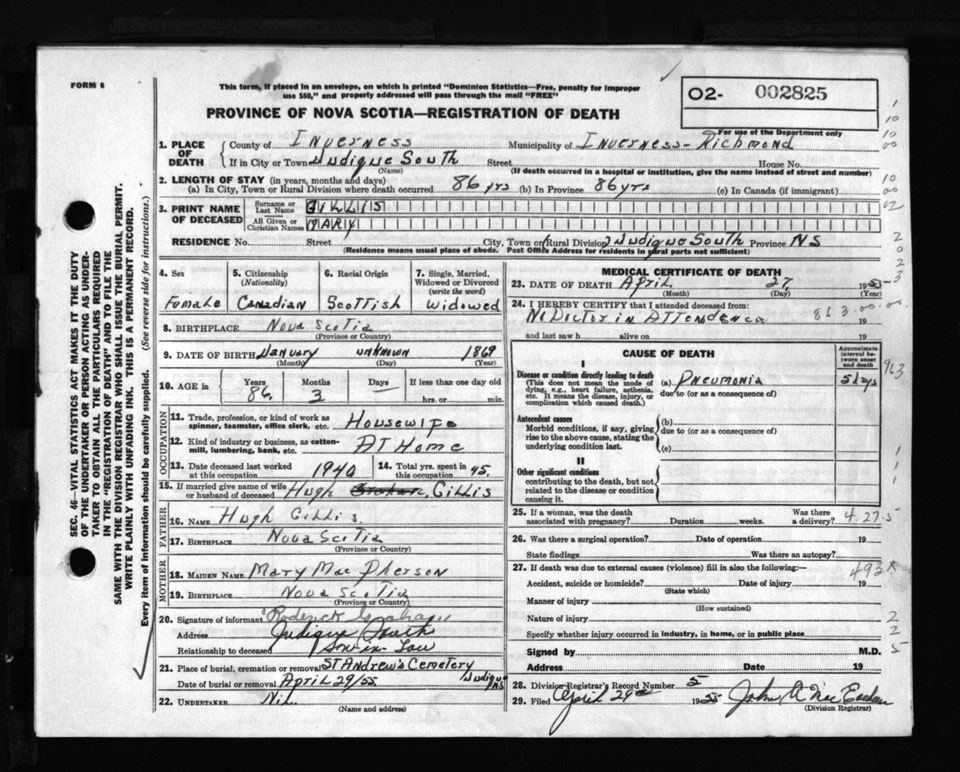 FORM 6
This form, if placed in an envelope, on which is printed "Dominion Statistics—Free, penalty for improper
use $50," and properly addressed will pass through the mail "FREE"
O2- 002825
PROVINCE OF NOVA SCOTIA—REGISTRATION OF DEATH
For use of the Department only
1. PLACE OF DEATH County of Inverness Municipality of Inverness-Richmond
If in City or Town Judique South Street House No.
(Name) (If death occurred in a hospital or institution, give the name instead of street and number)
2. LENGTH OF STAY (in years, months and days)
(a) In City, Town or Rural Division where death occurred 86 yrs (b) In Province 86 yrs (c) In Canada (if immigrant)
3. PRINT NAME OF DECEASED Surname or Last Name GILLIS
All Given or Christian Names MARY
RESIDENCE No. Street City, Town or Rural Division Judique South Province NS
(Residence means usual place of abode. Post Office Address for residents in rural parts not sufficient)
4. Sex Female
5. Citizenship (Nationality) Canadian
6. Racial Origin Scottish
7. Single, Married, Widowed or Divorced (write the word) Widowed
8. BIRTHPLACE Nova Scotia
9. DATE OF BIRTH January unknown 1869
(Month) (Day) (Year)
10. AGE in Years 86 Months 3 Days If less than one day old hrs. or min.
OCCUPATION
11. Trade, profession, or kind of work as spinner, teamster, office clerk, etc. Housewife
12. Kind of industry or business, as cotton-mill, lumbering, bank, etc. At Home
13. Date deceased last worked at this occupation 1940
14. Total yrs. spent in this occupation 45.
15. If married give name of wife or husband of deceased Hugh Gillis
FATHER
16. NAME Hugh Gillis
17. BIRTHPLACE Nova Scotia
(Province or Country)
MOTHER
18. MAIDEN NAME Mary MacPherson
19. BIRTHPLACE Nova Scotia
(Province or Country)
20. Signature of informant Roderick Graham
Address Judique South
Relationship to deceased Son-in-Law
21. Place of burial, cremation or removal St Andrew's Cemetery
Date of burial or removal April 29/55. Judique NS
22. UNDERTAKER Nil
(Name and address)
MEDICAL CERTIFICATE OF DEATH
23. DATE OF DEATH April 27, 1955
(Month) (Day) (Year)
24. I HEREBY CERTIFY that I attended deceased from:
No Doctor in Attendence 19
and last saw h alive on 19
CAUSE OF DEATH
Approximate interval between onset and death
I
Disease or condition directly leading to death
(This does not mean the mode of dying, e.g., heart failure, asthenia, etc. It means the disease, injury, or complication which caused death.)
(a) Pneumonia 5 days
due to (or as a consequence of)
Antecedent causes
Morbid conditions, if any, giving rise to the above cause, stating the underlying condition last.
(b)
due to (or as a consequence of)
(c)
II
Other significant conditions
contributing to the death, but not related to the disease or condition causing it.
25. If a woman, was the death associated with pregnancy? Duration weeks. Was there a delivery? 4.27.5
26. Was there a surgical operation? Date of operation 19
State findings Was there an autopsy?
27. If death was due to external causes (violence) fill in also the following:— 493
Accident, suicide or homicide? Date of injury 19
(State which)
Manner of injury
(How sustained)
Nature of injury
Specify whether injury occurred in industry, in home, or in public place
Signed by M.D.
Address Date 19
28. Division Registrar's Record Number 5
29. Filed April 29th 1955 John A MacEachern
(Division Registrar)
SEC. 46—VITAL STATISTICS ACT MAKES IT THE DUTY
OF THE UNDERTAKER OR PERSON ACTING AS UNDERTAKER TO OBTAIN ALL THE PARTICULARS REQUIRED
IN THE "REGISTRATION OF DEATH" AND TO FILE THE
SAME WITH THE DIVISION REGISTRAR WHO SHALL ISSUE THE BURIAL PERMIT.
WRITE PLAINLY WITH UNFADING INK. THIS IS A PERMANENT RECORD.
Every item of information should be carefully supplied. (See reverse side for instructions.)